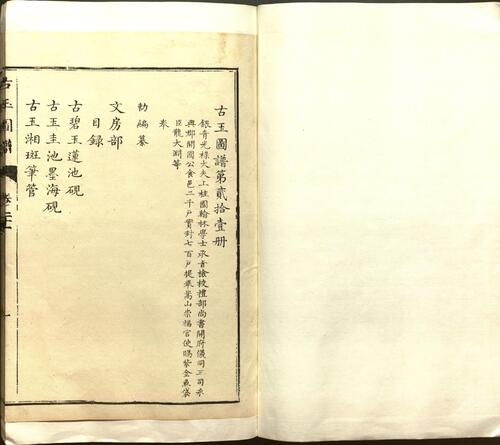 古玉圖譜第貳拾壹册
銀青光祿大夫上柱國翰林學士承旨檢校禮部尚書開府儀同三司永
興郡開國公食邑二千戶實封七百戶提舉嵩山崇福宮使賜紫金魚袋
臣龍大淵等
奉
勅編纂
文房部
目録
古碧玉蓮池硯
古玉圭池墨海硯
古玉湘斑筆管
古玉圖譜